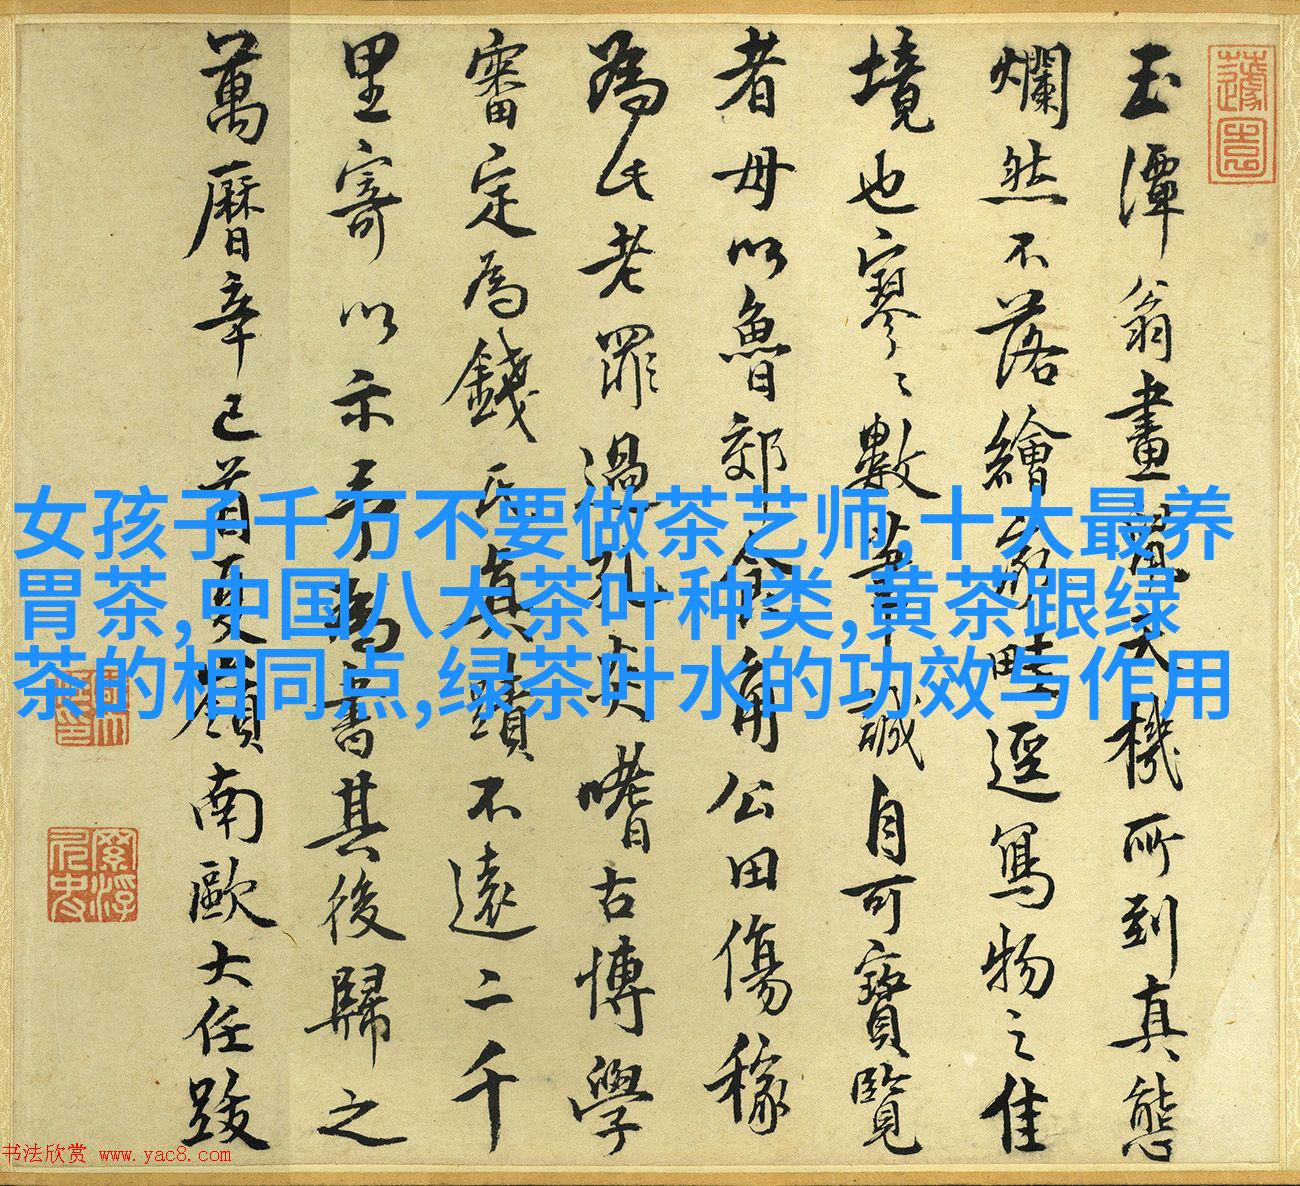 玉潭翁畫萱天機所到真態
爛然不落繪家畦逕寫物之佳
境也寥〻數筆誠自可寶覽
者毋以魯郊食角公田傷稼
為此老罪過孔炎嗜古博學
審定為錢氏真蹟不遠二千
里寄以示予為書其後歸之
萬曆辛巳首夏嶺南歐大任跋
女孩子千万不要做茶艺师,十大最养
胃茶,中国八大茶叶种类,黄茶跟绿
茶的相同点,绿茶叶水的功效与作用
书法欣赏 www.yac8.com